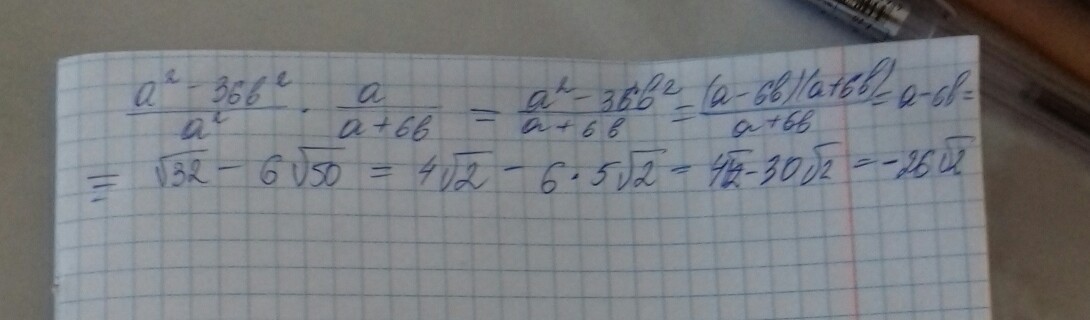 (a² - 36b²)/a² · a/(a+6b) = (a² - 36b²)/(a+6b) = (a-6b)(a+6b)/(a+6b) = a-6b =
= √32 - 6√50 = 4√2 - 6·5√2 = 4√2-30√2 = -26√2